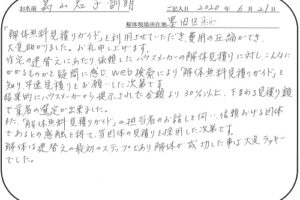 お名前 畠山知子訓明 ご記入日 2020年6月21日
解体現場所在地 墨田区
「解体無料見積りガイド」を利用させていただき、費用の圧縮ができ、
大変助かりました。お礼申し上げます。
住宅の建替えにあたり依頼したハウスメーカーの解体見積りに対しこんなに
かかるものかと疑問に感じ、Web検索により「解体無料見積りガイド」を
知り早速見積りをお願いした次第です。
結果的にハウスメーカーから提示された金額より30%以上、下まわる見積り額
で業者の選定が出来ました。
又「解体無料見積りガイド」の担当者のお話しを伺い、信頼おける団体
であるとの感触を得て、当団体の見積りを採用した次第です。
解体は建替えの最初のステップであり解体が成功した事は大変ラッキー
でした。